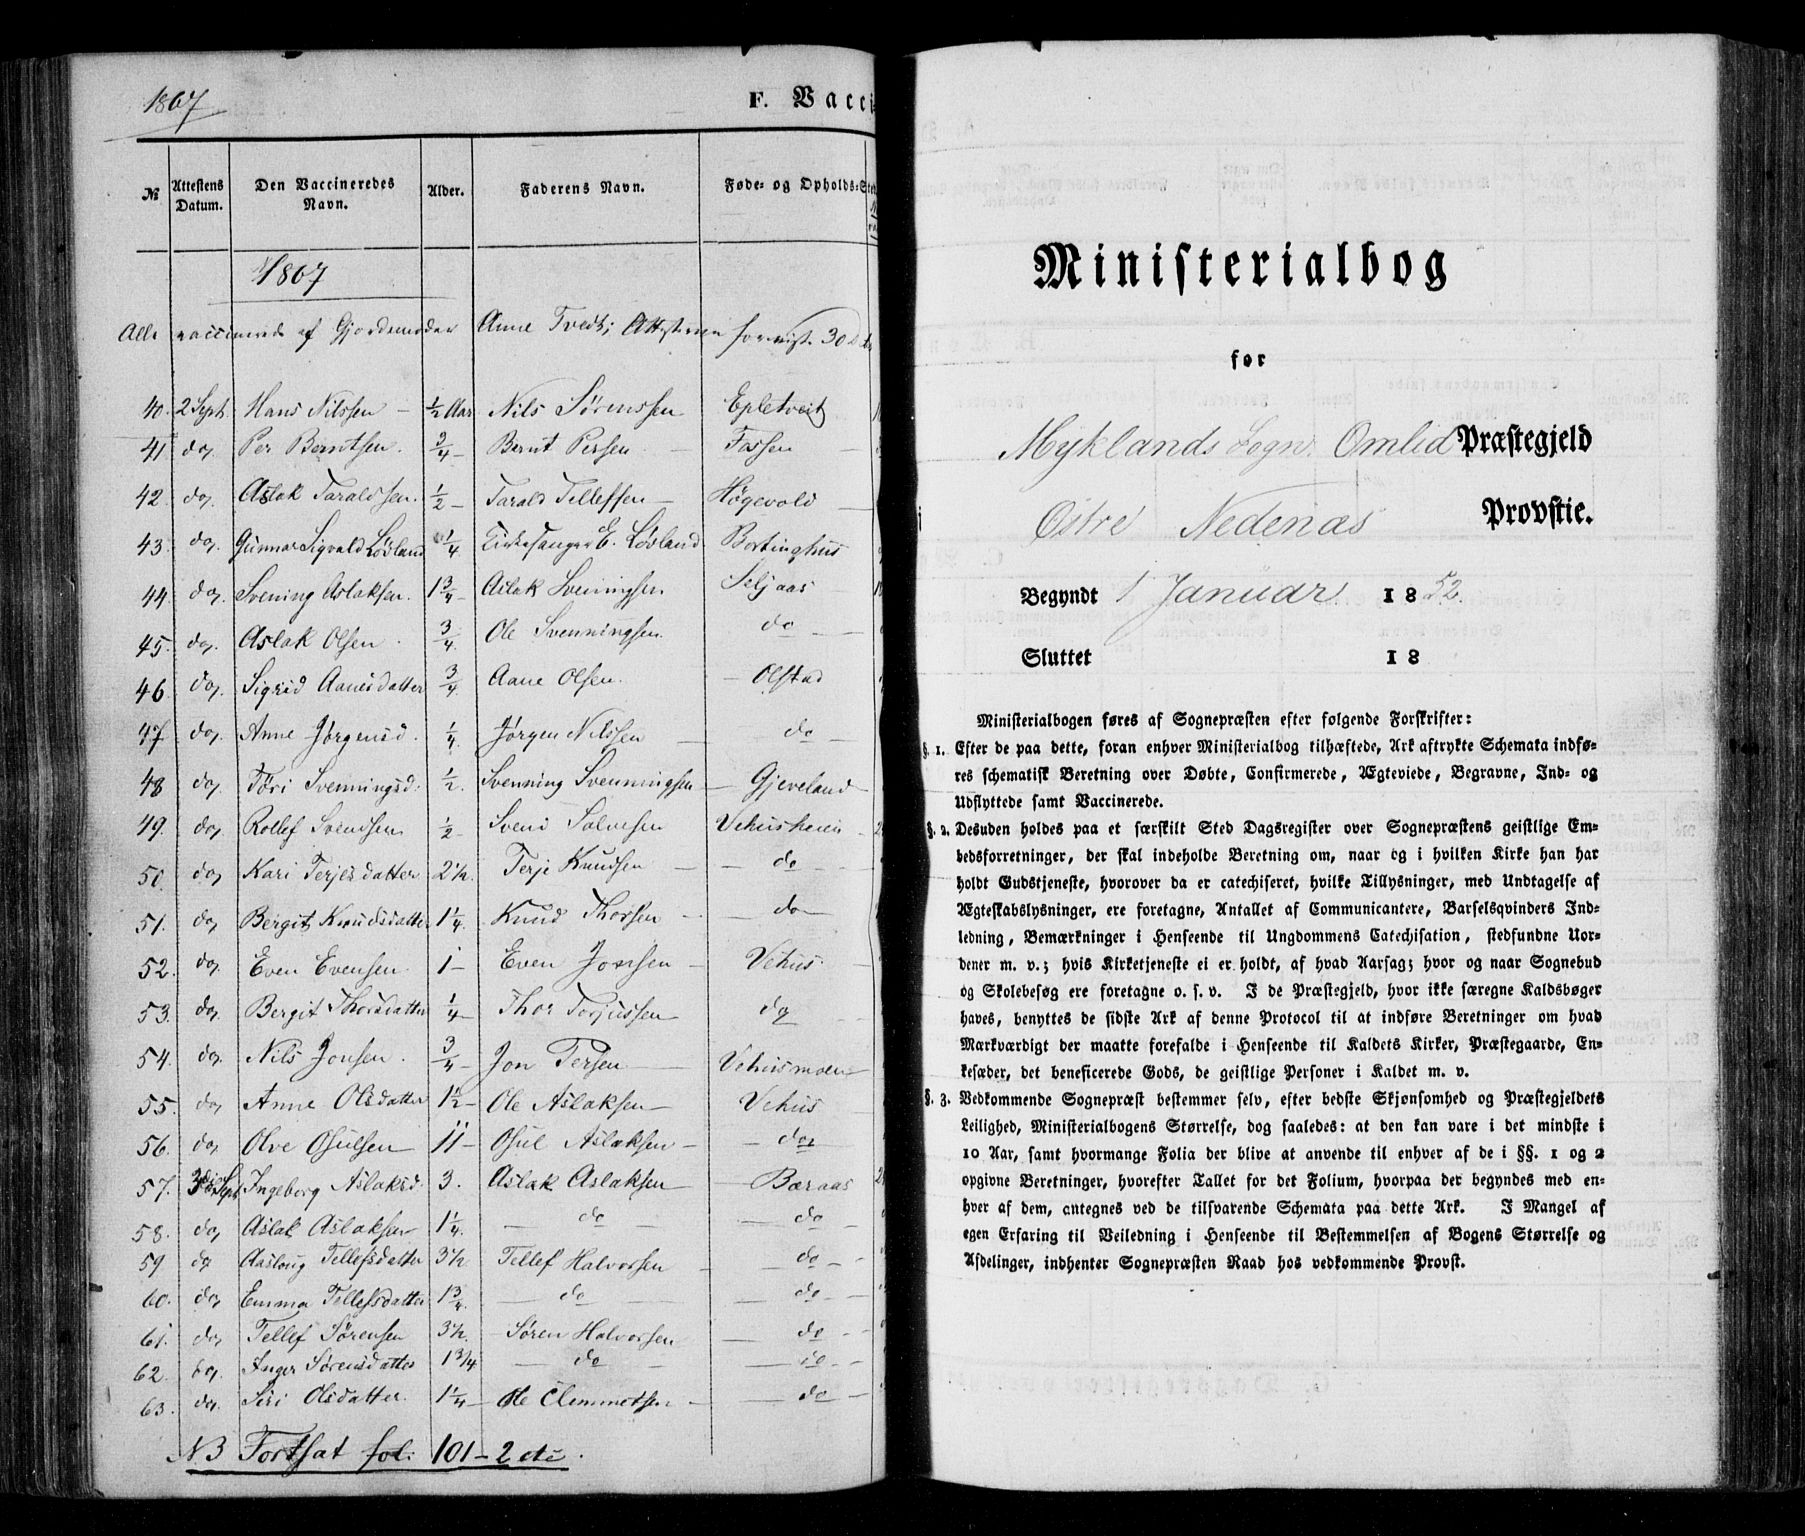 1867
F. Vacci-
№ Attestens Datum. Den Vaccineredes Navn. Alder. Faderens Navn. Føde- og Opholds-Sted
1867
Alle vaccinerede af Gjordemoder Anne Tvedt; Attesterne forevist 30
40. 2 Sept. Hans Nilssen - 1/2 Aar Nils Sörenssen Epletveit
41 do. Per Berntsen. 3/4 - Bernt Persen - Fossen -
42 do. Aslak Taraldsen. 1/2 - Tarald Tellefsen - Högevold -
43. do. Gunnar Sigvald Lövland 1/4. Kirkesanger E. Lövland Bortinghus
44. do. Svening Aslaksen. 1 3/4 - Aslak Sveningsen Seljaas
45. do. Aslak Olsen. 3/4. Ole Svenningsen do -
46. do. Sigrid Aanesdatter 3/4. Aane Olsen. - Olstad
47 do. Anne Jørgensd. 1/4. Jørgen Nilssen - do -
48 do. Töri Svenningsd. 1/2. Svenning Svenningsen - Gjeveland -
49. do. Rollef Svendsen 1/2 - Svend Salvesen Vehusheien -
50. do. Kari Terjesdatter 2 1/2. Terje Knudsen - - do -
51. do. Bergit Knudsdatter 1 1/4. Knud Thorsen - do -
52. do. Even Evensen. 1 - Even Jonsen - Vehus.
53. do. Bergit Thorsdatter 1/4 - Thor Torjussen - do -
54. do. Nils Jonsen. 3/4 - Jon Tersen - Vehusmoen
55. do. Anne Olsdatter 1 1/2 - Ole Aslaksen - Vehus
56. do. Olve Osulsen 11 - Osul Aslaksen - - do -
57. 3die Sept Ingeborg Aslaksd. 3. Aslak Aslaksen - Bæraas
58. do. Aslak Aslaksen 1 1/4. - do - - do
59 do Aaslaug Tellefsdatter 3 1/2 Tellef Halvorsen - - do -
60. do. Emma Tellefsdatter 1 3/4. - do - - do -
61. do. Tellef Sørensen 3 1/2. - Søren Halvorsen - do -
62. do. Anger Sørensdatter 1 3/4 - do - - do -
63. do. Siri Olsdatter. 1 1/4 - Ole Clemmetsen - - do -
NB Fortsat fol: 101 - 2 etc.
Ministerialbog
for
Myklands Sogn. Omlid Præstegjeld
Østre Nedenæs Provstie.
Begyndt 1 Januar. 1852.
Sluttet 18
Ministerialbogen føres af Sognepræsten efter følgende Forskrifter:
§. 1. Efter de paa dette, foran enhver Ministerialbog tilhæftede, Ark aftrykte Schemata indfø-
res schematisk Beretning over Døbte, Confirmerede, Ægteviede, Begravne, Ind- og
Udflyttede samt Vaccinerede.
§. 2. Desuden holdes paa et særskilt Sted Dagsregister over Sognepræstens geistlige Em-
bedsforretninger, der skal indeholde Beretning om, naar og i hvilken Kirke han har
holdt Gudstjeneste, hvorover da er catechiseret, hvilke Tillysninger, med Undtagelse af
Ægteskabslysninger, ere foretagne, Antallet af Communicantere, Barselsqvinders Ind-
ledning, Bemærkninger i Henseende til Ungdommens Catechisation, stedfundne Uor-
dener m. v.; hvis Kirketjeneste ei er holdt, af hvad Aarsag; hvor og naar Sognebud
og Skolebesøg ere foretagne o. s. v. I de Præstegjeld, hvor ikke særegne Kaldsbøger
haves, benyttes de sidste Ark af denne Protocol til at indføre Beretninger om hvad
Mærkværdigt der maatte forefalde i Henseende til Kaldets Kirker, Præstegaarde, En-
kesæder, det beneficerede Gods, de geistlige Personer i Kaldet m. v.
§. 3. Vedkommende Sognepræst bestemmer selv, efter bedste Skjønsomhed og Præstegjeldets
Leilighed, Ministerialbogens Størrelse, dog saaledes: at den kan vare i det mindste i
10 Aar, samt hvormange Folia der blive at anvende til enhver af de i §§. 1 og 2
opgivne Beretninger, hvorefter Tallet for det Folium, hvorpaa der begyndes med en-
hver af dem, antegnes ved de tilsvarende Schemata paa dette Ark. I Mangel af
egen Erfaring til Veiledning i Henseende til Bestemmelsen af Bogens Størrelse og
Afdelinger, indhenter Sognepræsten Raad hos vedkommende Provst.